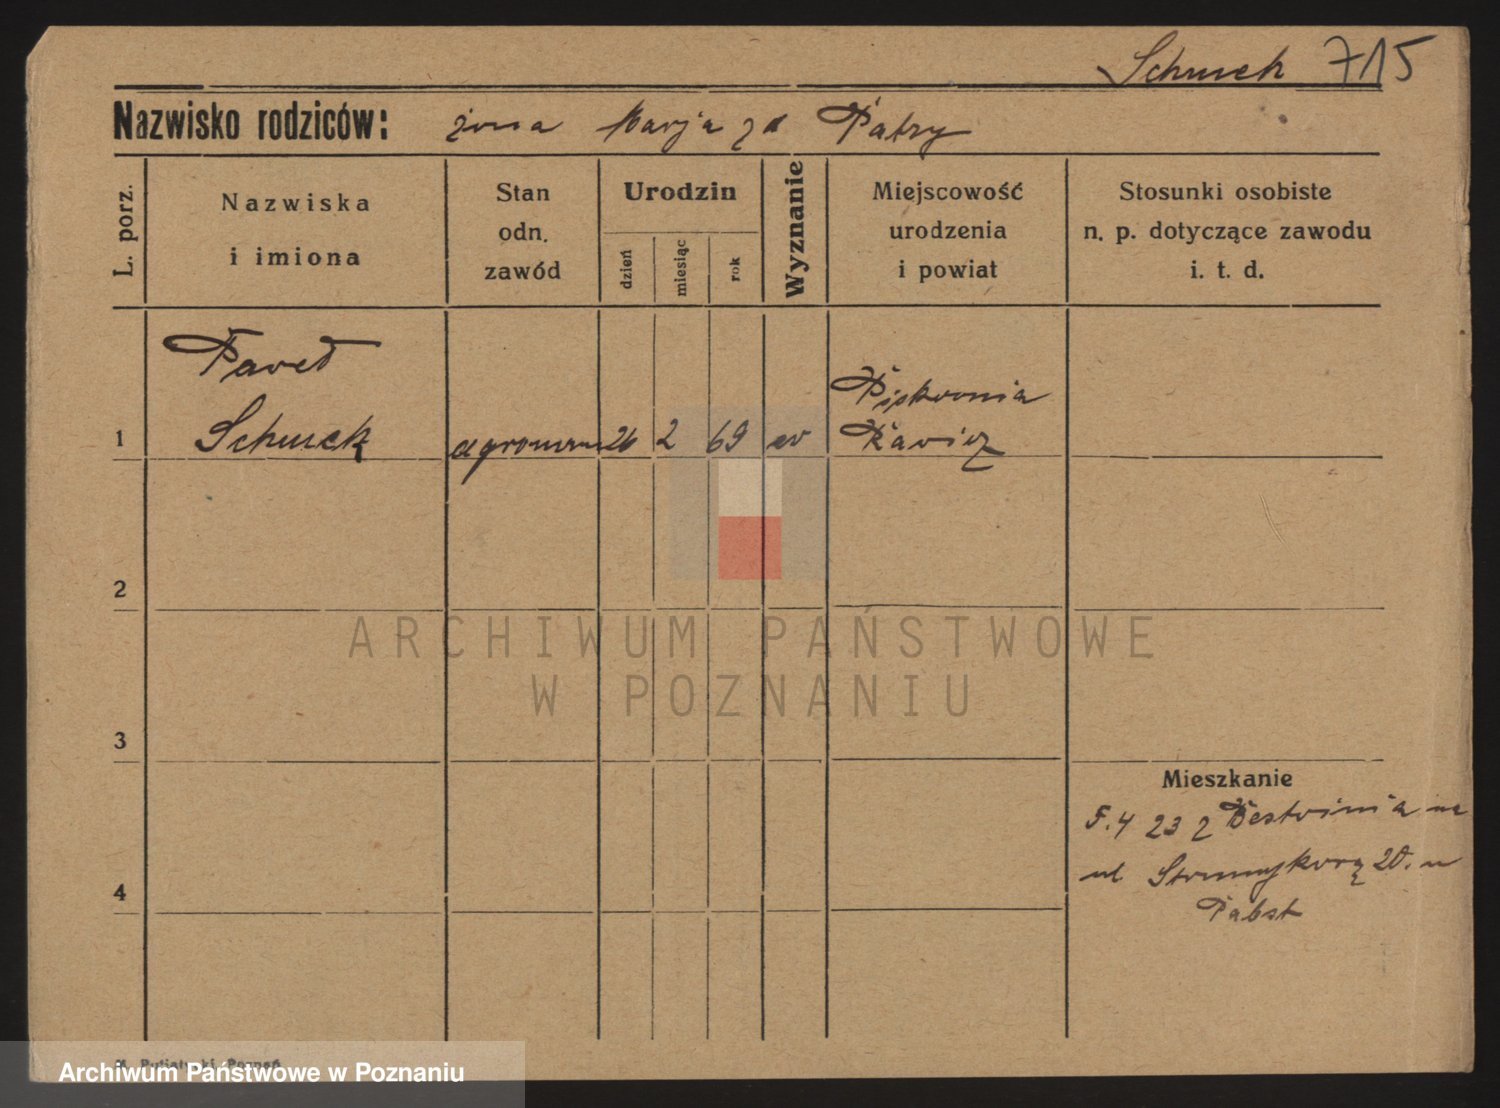 Schueck 715
Nazwisko rodziców: żona Marja zd Patzy
L. porz.
Nazwiska i imiona
Stan odn. zawód
Urodzin
dzień
miesiąc
rok
Wyznanie
Miejscowość urodzenia i powiat
Stosunki osobiste n. p. dotyczące zawodu i. t. d.
Paweł
1 Schueck agronom 26 2 69 ew
Rawicz
2
ARCHIWUM PAŃSTWOWE
W POZNANIU
3
Mieszkanie
5.4 23 z
ul 20. u
Pabst
4
Archiwum Państwowe w Poznaniu